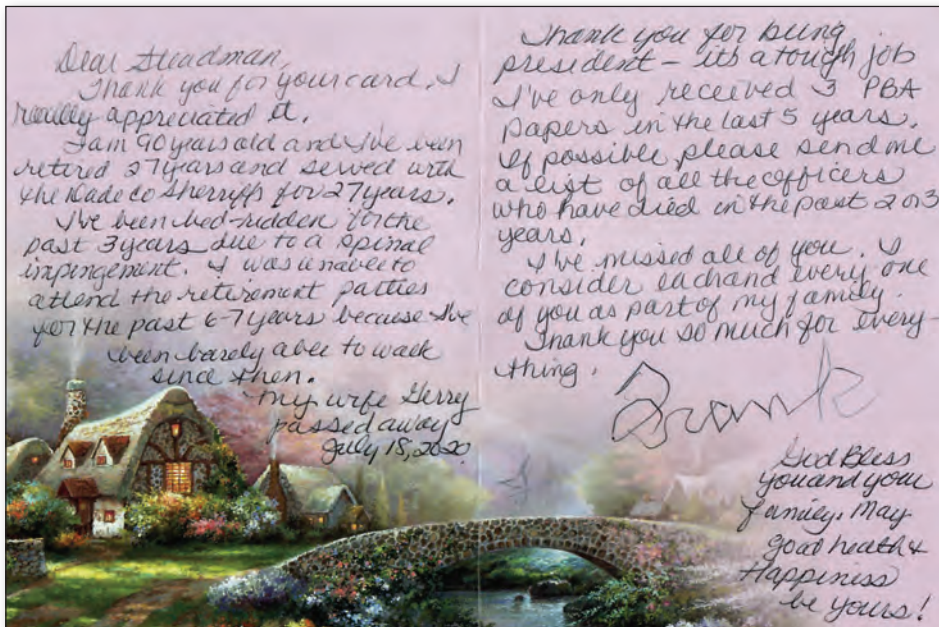 Dear Steadman,
Thank you for your card. I
really appreciated it.
I am 90 years old and I've been
retired 27 years and served with
the Dade Co Sherriffs for 27 years.
I've been bed-ridden for the
past 3 years due to a spinal
impingement. I was unable to
attend the retirement parties
for the past 6-7 years because I've
been barely able to walk
since then.
My wife Gerry
passed away
July 18, 2020
Thank you for being
president - its a tough job
I've only received 3 PBA
papers in the last 5 years.
If possible please send me
a list of all the officers
who have died in the past 2 or 3
years.
I've missed all of you. I
consider each and every one
of you as part of my family.
Thank you so much for every-
thing.
Frank
God Bless
you and your
family. May
good health &
Happiness
be yours!